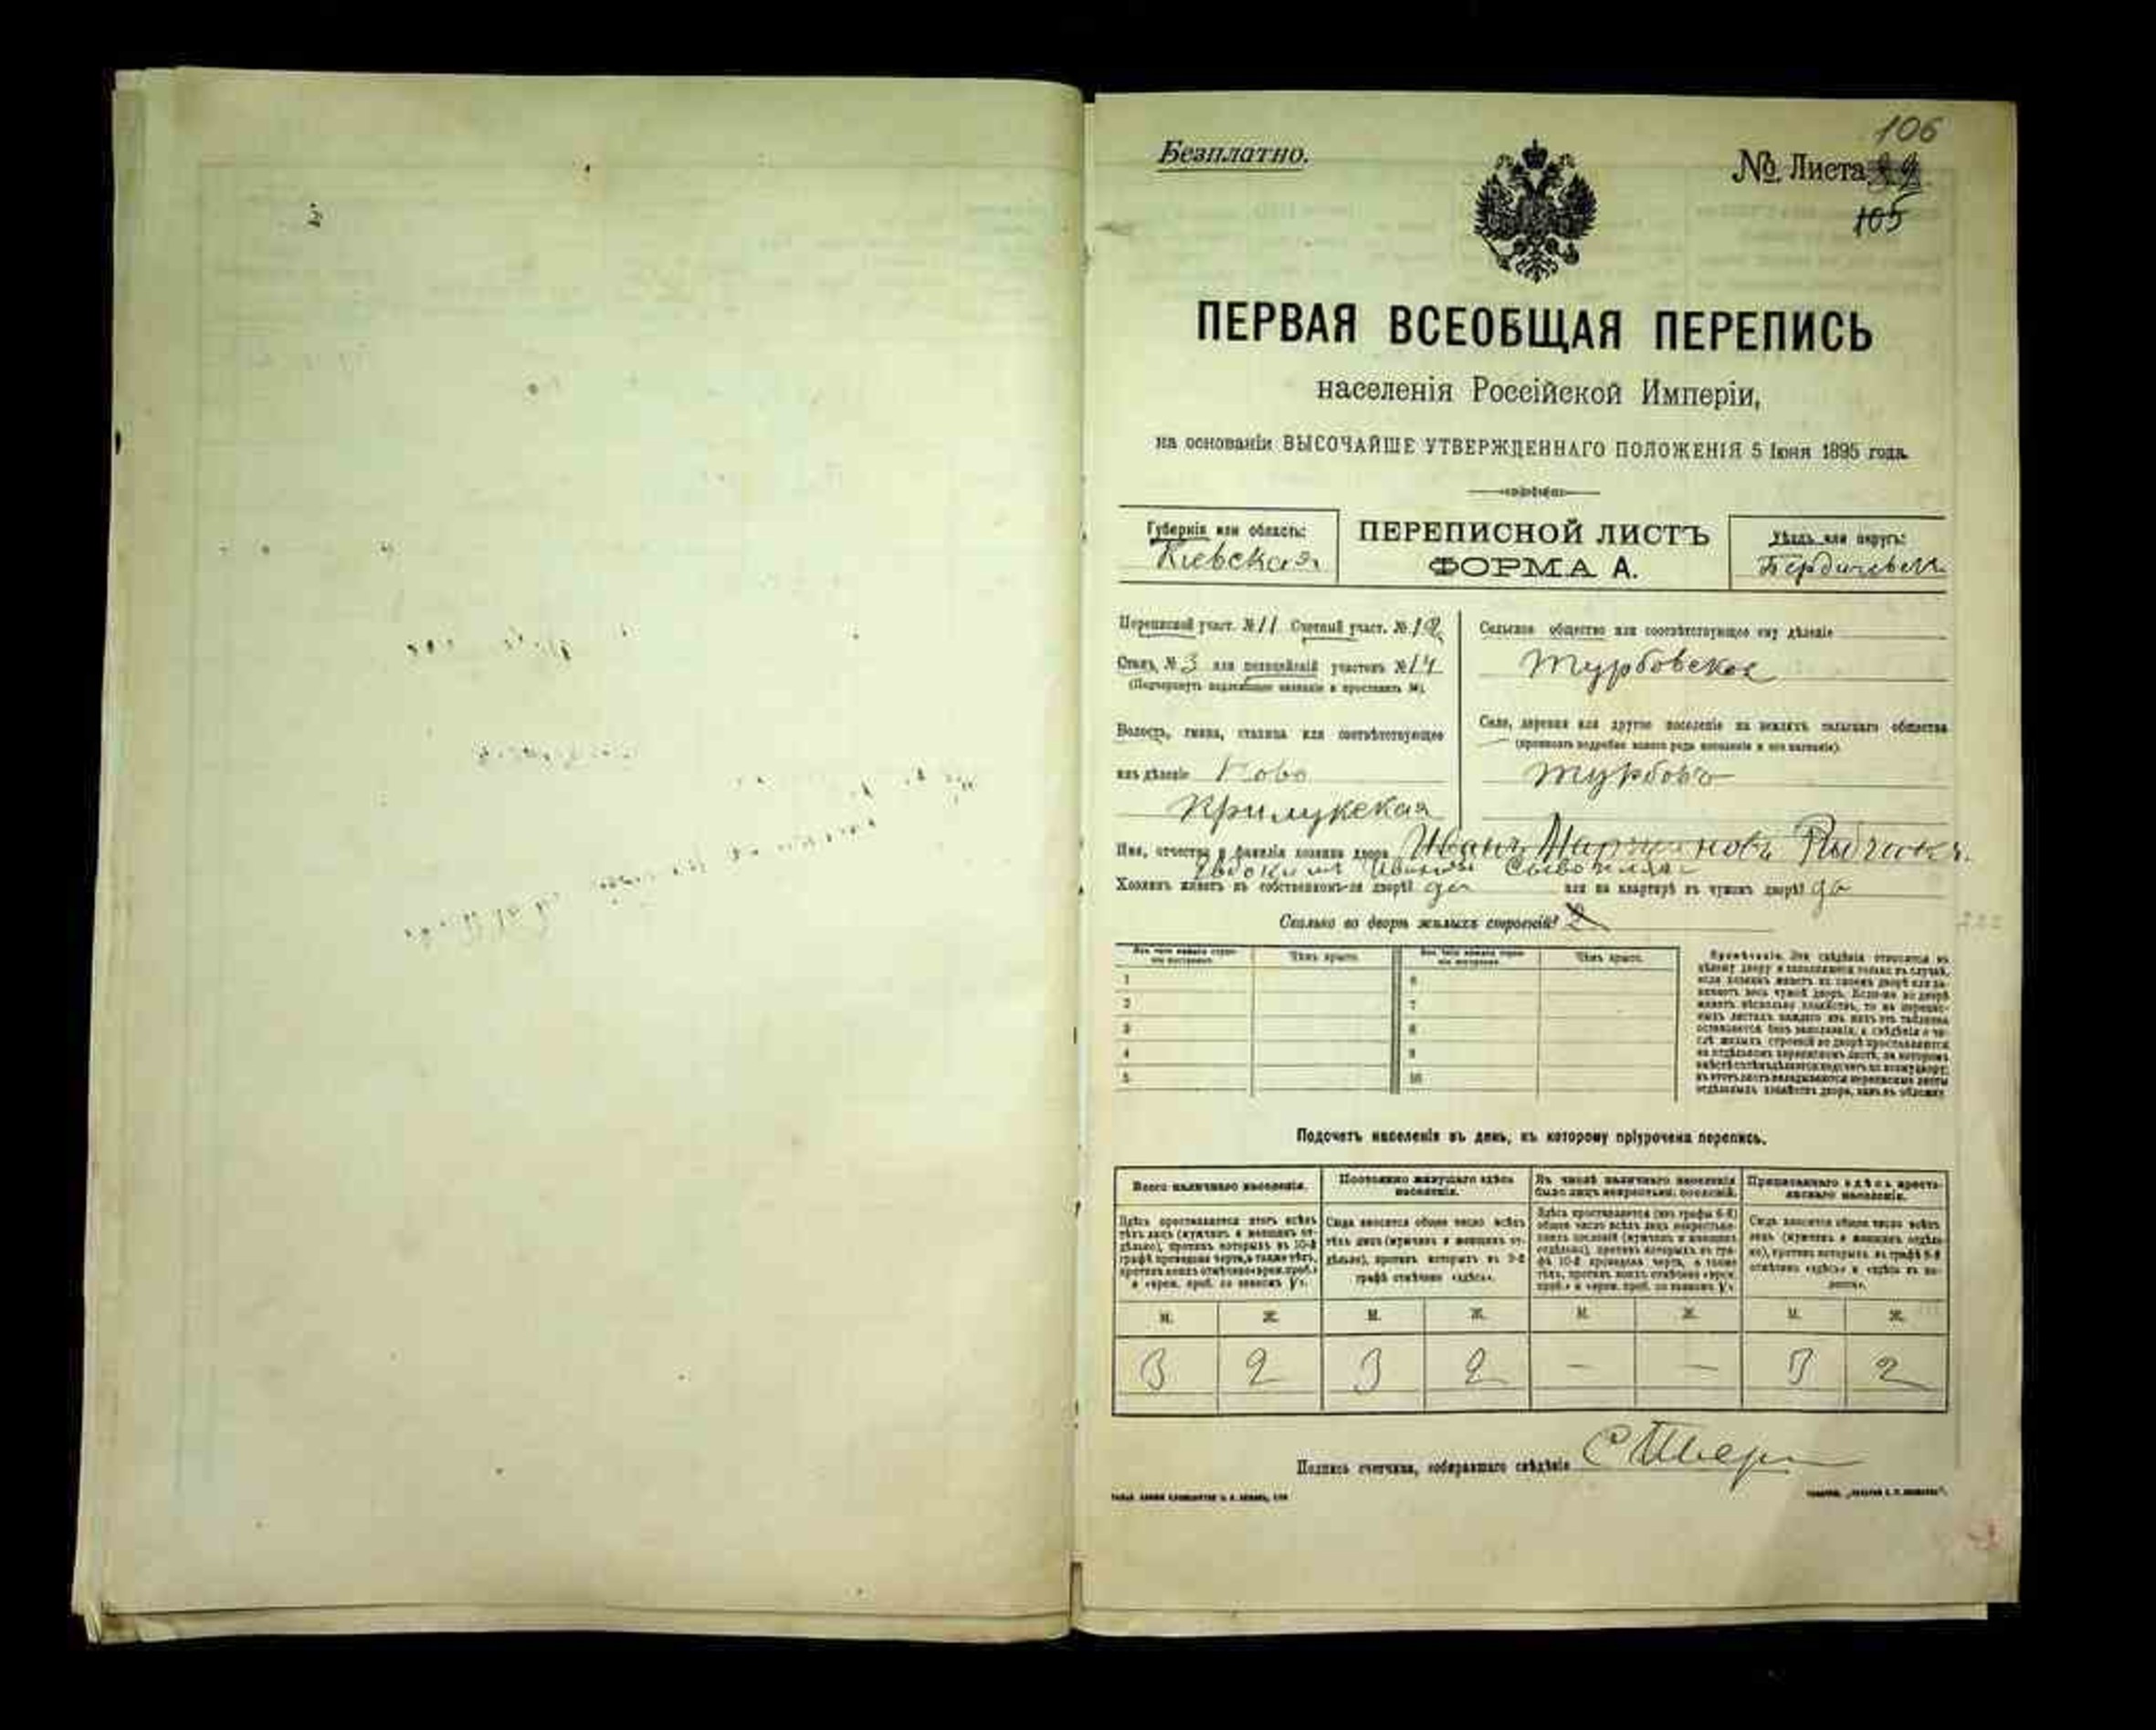 106
Безплатно.
№ Листа
105
ПЕРВАЯ ВСЕОБЩАЯ ПЕРЕПИСЬ
населенія Россійской Имперіи,
на основаніи ВЫСОЧАЙШЕ УТВЕРЖДЕННАГО ПОЛОЖЕНІЯ 5 Іюня 1895 года.
Губернія или область:
Кіевская
ПЕРЕПИСНОЙ ЛИСТЪ
ФОРМА А.
Уѣздъ или округъ:
Бердичевск
Переписной участ. № 11 Счетный участ. № 12
Станъ, № 3 или полицейскій участокъ № 14
(Подчеркнуть подлежащее названіе и проставить №).
Волость, гмина, станица или соотвѣтствующее
имъ дѣленіе Ново
Прилукская
Сельское общество или соотвѣтствующее ему дѣленіе
Турбовское
Село, деревня или другое поселеніе на земляхъ сельскаго общества
(прописать подробно какого рода поселеніе и его названіе).
Турбовъ
Имя, отчество и фамилія хозяина двора Иванъ
Хозяинъ живетъ въ собственномъ-ли дворѣ? да или на квартирѣ въ чужомъ дворѣ? да
Сколько во дворѣ жилыхъ строеній? 2
Изъ чего каждое строеніе построено. Чѣмъ крыто. Изъ чего каждое строеніе построено. Чѣмъ крыто.
1 6
2 7
3 8
4 9
5 10
Примѣчаніе. Эти свѣдѣнія относятся къ
цѣлому двору и заполняются только въ случаѣ,
если хозяинъ живетъ въ своемъ дворѣ или за-
нимаетъ весь чужой дворъ. Если-же во дворѣ
живетъ нѣсколько хозяйствъ, то на перепис-
ныхъ листахъ каждаго изъ нихъ эта табличка
оставляется безъ заполненія, а свѣдѣнія о чи-
слѣ жилыхъ строеній во дворѣ проставляются
на отдѣльномъ переписномъ листѣ, на которомъ
въ этотъ листъ вкладываются переписные листы
отдѣльныхъ хозяйствъ двора, какъ въ обложку
Подсчетъ населенія въ день, къ которому пріурочена перепись.
Всего наличнаго населенія.
Постоянно живущаго здѣсь населенія.
Въ числѣ наличнаго населенія было лицъ некрестьянск. сословій.
Приписаннаго здѣсь крестьянскаго населенія.
Здѣсь проставляется итогъ всѣхъ
тѣхъ лицъ (мужчинъ и женщинъ от-
дѣльно), противъ которыхъ въ 10-й
графѣ проведена черта, а также тѣхъ,
противъ коихъ отмѣчено «врем. проб.»
и «врем. проб. со знакомъ V».
Сюда вносится общее число всѣхъ
тѣхъ лицъ (мужчинъ и женщинъ от-
дѣльно), противъ которыхъ въ 9-й
графѣ отмѣчено «здѣсь».
Здѣсь проставляется (изъ графы 6-й)
общее число всѣхъ лицъ некрестьян-
скихъ сословій (мужчинъ и женщинъ
отдѣльно), противъ которыхъ въ гра-
фѣ 10-й проведена черта, а также
тѣхъ, противъ коихъ отмѣчено «врем.
проб.» и «врем. проб. со знакомъ V».
Сюда вносится общее число всѣхъ
лицъ (мужчинъ и женщинъ отдѣль-
но), противъ которыхъ въ графѣ 8-й
отмѣчено «здѣсь» и «здѣсь въ во-
лости».
М. Ж. М. Ж. М. Ж. М. Ж.
3 2 3 2 — — 3 2
Подпись счетчика, собиравшаго свѣдѣнія